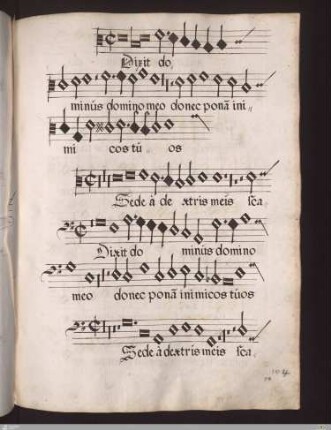 Dixit do
minús domino meo donec ponã ini-
mi cos tú- os
Sede á de xtris meis sca
Dixit do minús domino
meo donec ponã inimicos túos
Sede á dextris meis sca-